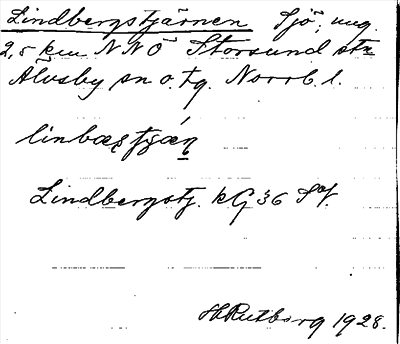 Lindbergstjärnen Sjö, ung.
2,5 km NNÖ Storsund stn
Älvsby sn o. tg. Norrb. l.
linbæs̨tjǽn̥
Lindbergstj. kG 36 SV.
H Rutberg 1928.